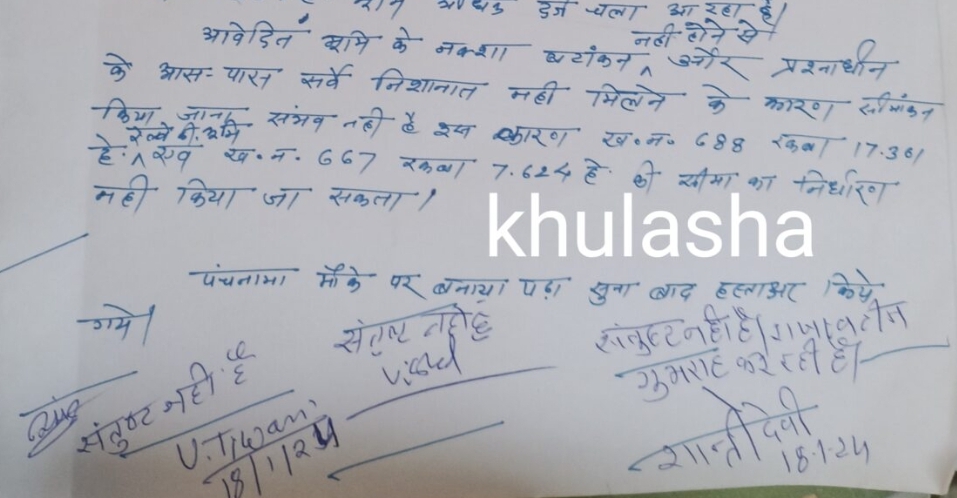 दर्ज चला आ रहा है।
नही होने से
आवेदित भूमि के नक्शा बटांकन ^ और प्रश्नाधीन
के आस-पास सर्वे निशानात नही मिलने के कारण सीमांकन
किया जाना संभव नही है इस कारण ख.न. 688 रकबा 17.361
रेल्वे की भूमि
हे. ^ एवं ख.न. 667 रकबा 7.624 हे. की सीमा का निर्धारण
नही किया जा सकता।
khulasha
पंचनामा मौके पर बनाया पढ़ा सुना बाद हस्ताक्षर किये
गये।
संतुष्ट नहीं है
संतुष्ट नहीं है। राजस्व टीम
गुमराह कर रही है।
संतुष्ट नहीं है
U.Tiwari
18/1/24
शान्ती देवी
18-1-24